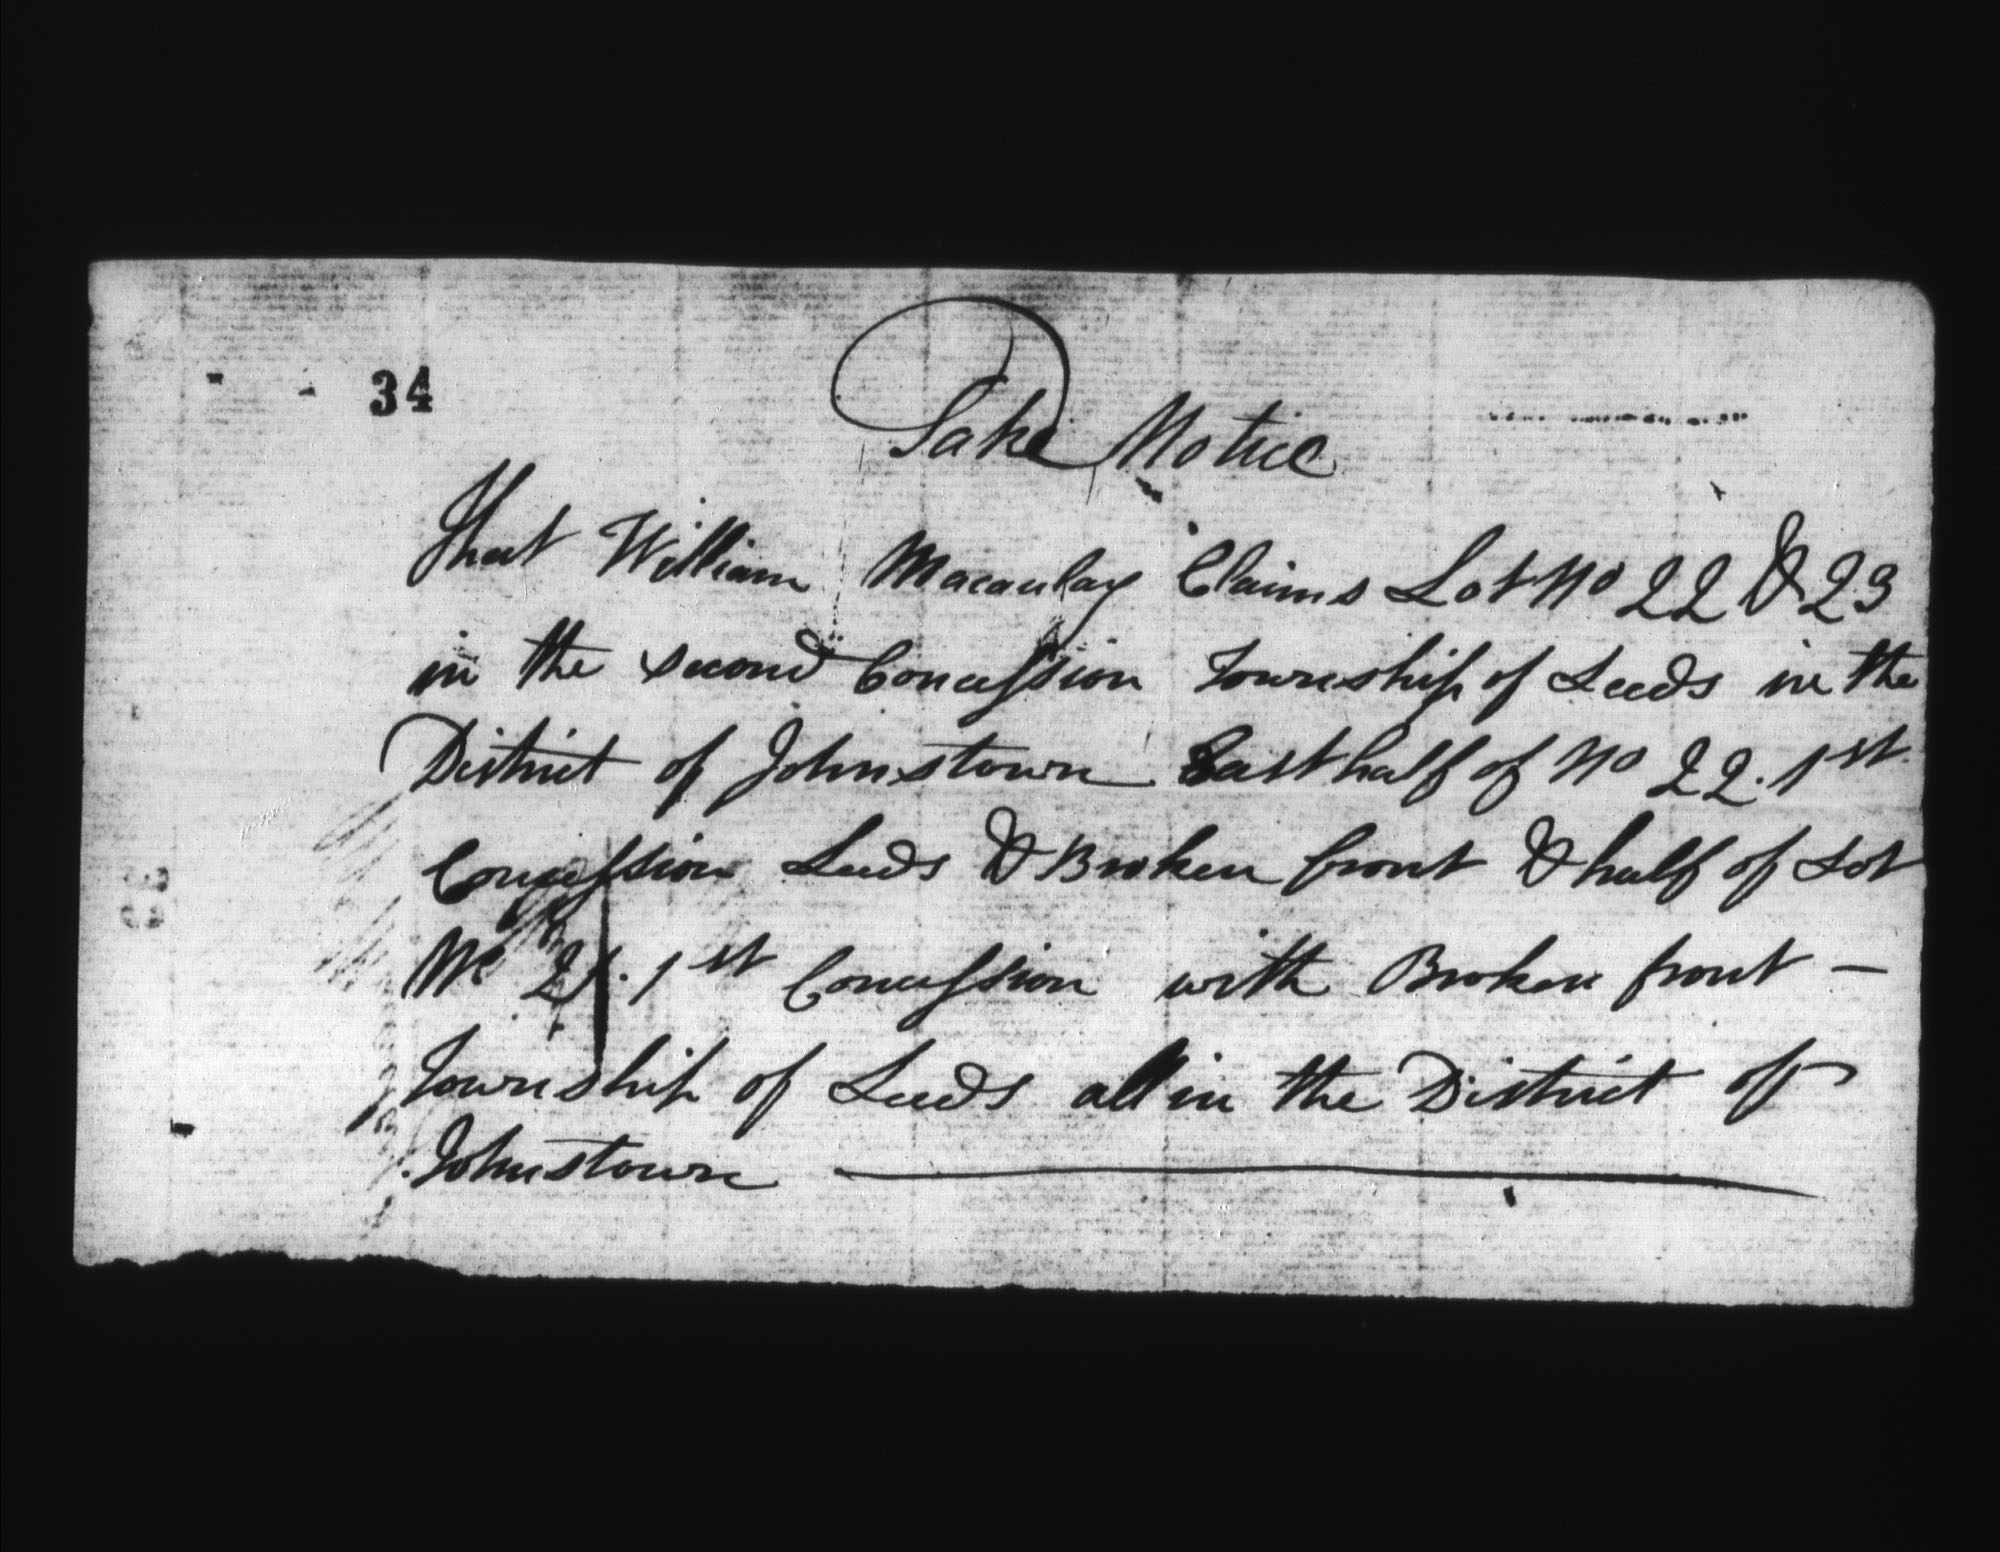 34
Take Notice
That William Macaulay Claims Lot No 22 & 23
in the second Concession Township of Leeds in the
District of Johnstown East half of No 22. 1st
Concession Leeds & Broken front & half of Lot
No 21. 1st Concession with Broken front —
Township of Leeds all in the District of
Johnstown